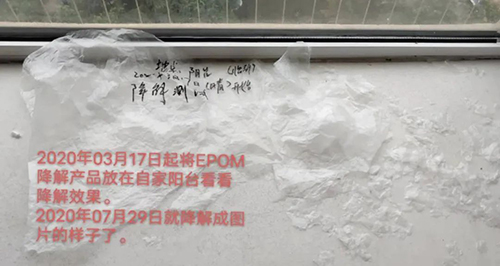 降解测
2020年03月17日起将EPOM
降解产品放在自家阳台看看
降解效果。
2020年07月29日就降解成图
片的样子了。